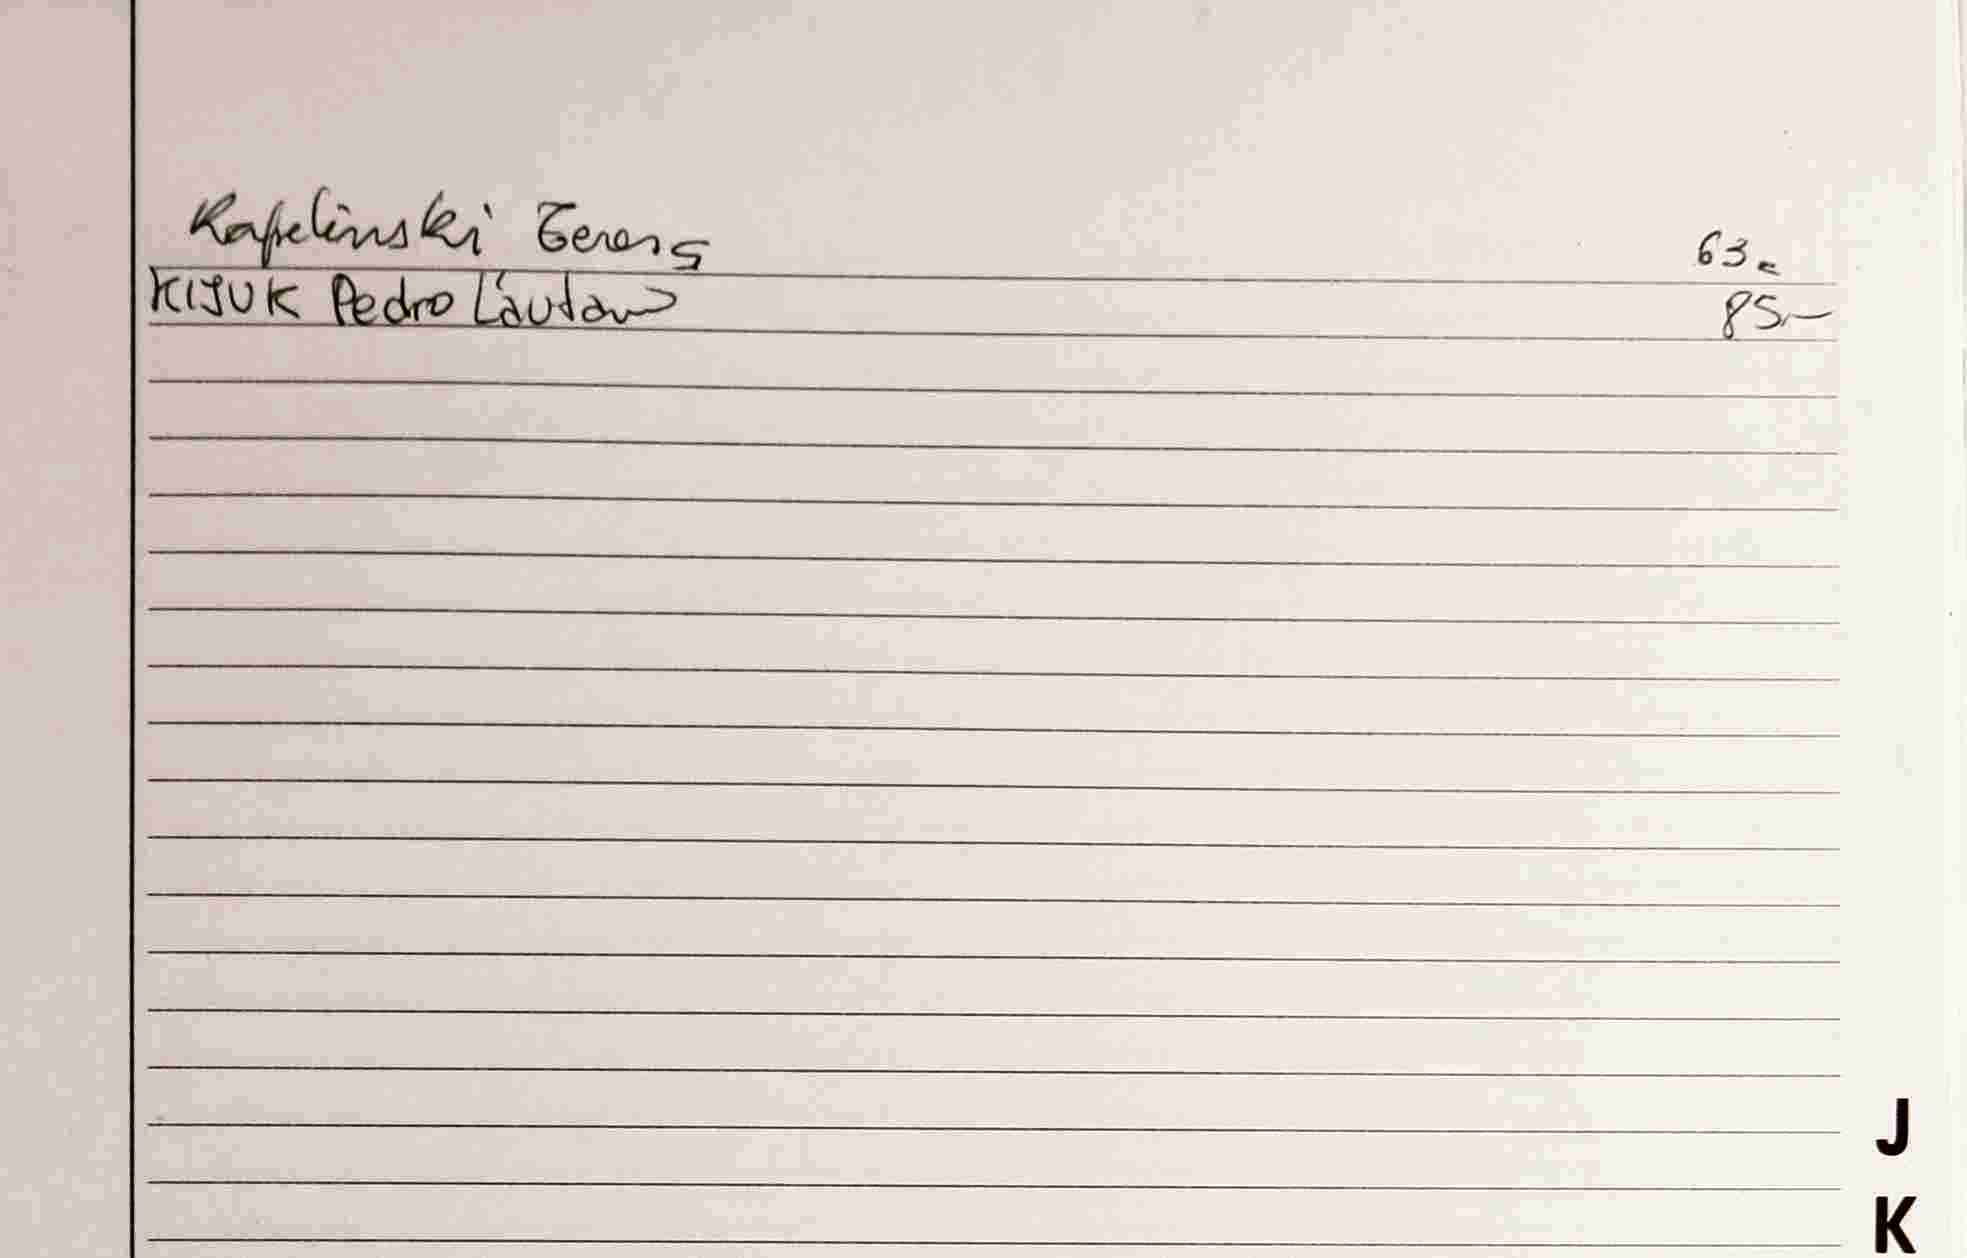 Kapelinski 63
KIJUK Pedro Lautaro 85
J
K